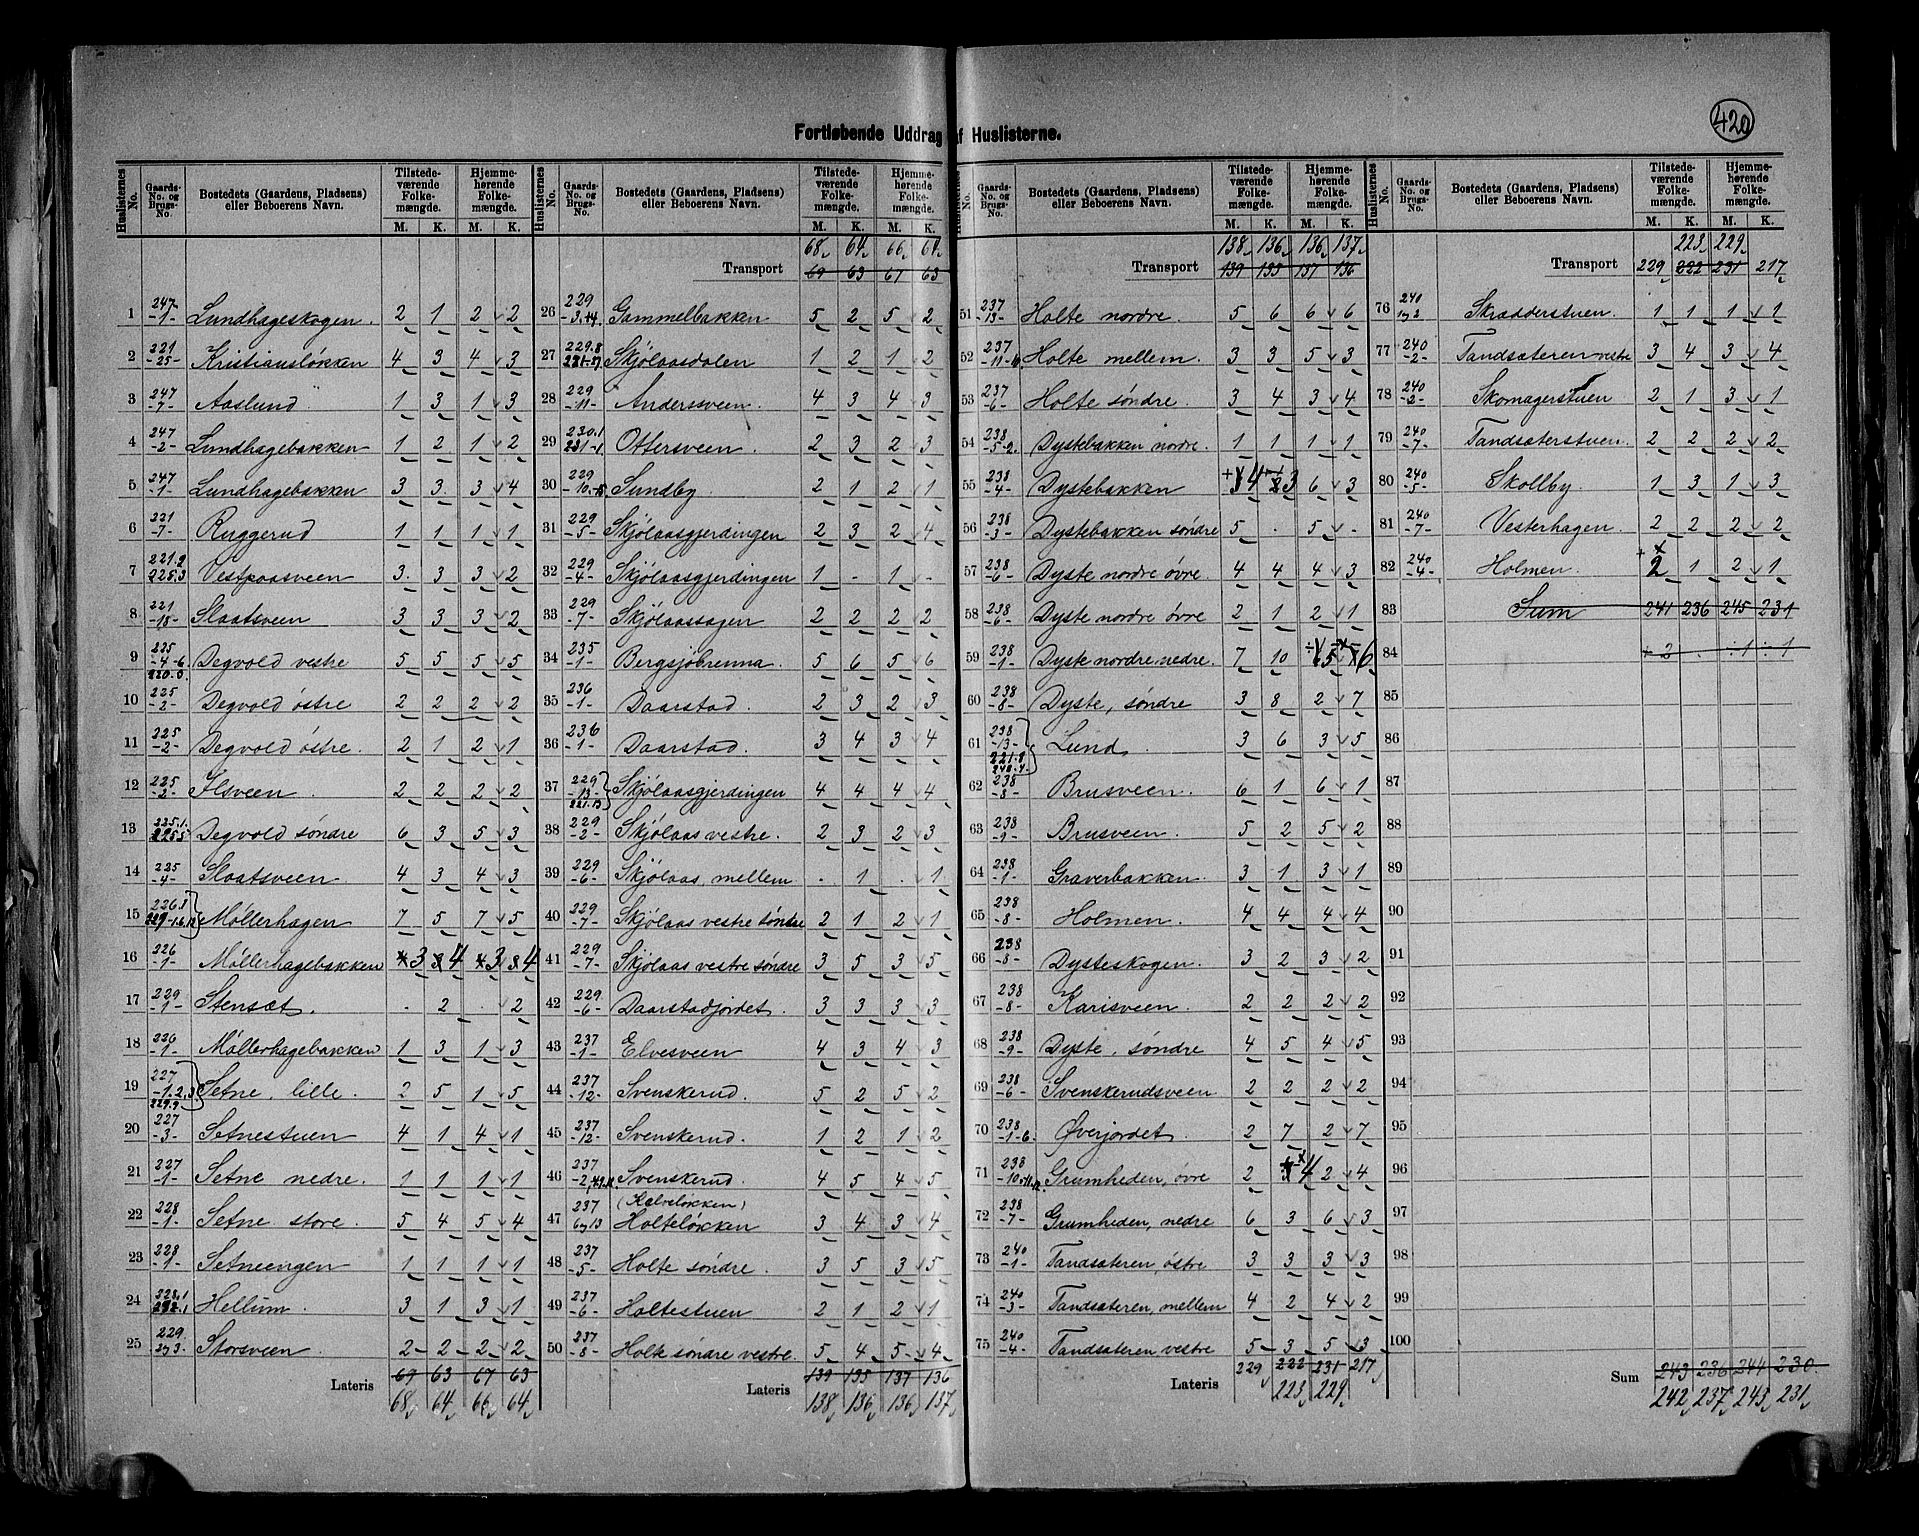 420
Fortløbende Uddrag af Huslisterne.
Huslisternes No. Gaards-No. og Brugs-No. Bostedets (Gaardens, Pladsens) eller Beboerens Navn. Tilstede-værende Folke-mængde. M. K. Hjemme-hørende Folke-mængde. M. K.
1 247 -1- Lundhageskogen. 2 1 2 2
2 221 -25- Kristiansløkken 4 3 4 3
3 247 -7- Aaslund 1 3 1 3
4 247 -2- Lundhagebakken 1 2 1 2
5 247 -1- Lundhagebakken 3 3 3 4
6 221 -7- Ruggerud 1 1 1 1
7 221.2 225.3 Vestpaasveen 3 3 3 2
8 221 -18- Slaatsveen 3 3 3 2
9 225 -4-6 Degvold vestre 5 5 5 5
10 225 -2- Degvold østre 2 2 2 2
11 225 -2- Degvold østre. 2 1 2 1
12 225 -2- Ilsveen. 2 2 2 2
13 225.1. Degvold søndre 6 3 5 3
14 225 -4- Slaatsveen 4 3 4 3
15 Møllerhagen 7 5 7 5
16 226 -1- Møllerhagebakken 3 4 3 4
17 229 -1- Stensæt. . 2 . 2
18 226 -1- Møllerhagebakken 1 3 1 3
19 227 -1.2.3 229.9 Setne, lille. 2 5 1 5
20 227 -3- Setnestuen 4 1 4 1
21 227 -1- Setne nedre. 1 1 1 1
22 228 -1- Setne store. 5 4 5 4
23 228 -1- Setneengen 1 1 1 1
24 228.1 Hellum. 3 1 3 1
25 229. Storsveen 2 2 2 2
Lateris 69 63 67 63
68 64 66 64
68 64 66 64
Transport 69 63 67 63
26 229 -3.44. Gammelbakken 5 2 5 2
27 229.8 Skjølaasdalen 1 2 1 2
28 229 -11- Andersveen. 4 3 4 3
29 230.1 231-1. Ottersveen. 2 3 2 3
30 229 -10.15 Sundby. 2 1 2 1
31 229 -5- Skjølaasgjerdingen 2 3 2 4
32 229 -4- Skjølaasgjerdingen 1 - 1 -
33 229 -7- Skjølaassagen 2 2 2 2
34 235 -1- Bergsjøbrenna. 5 6 5 6
35 236 -1- Daarstad. 2 3 2 3
36 236 -1- Daarstad. 3 4 3 4
37 229 -13- 221.13 Skjølaasgjerdingen 4 4 4 4
38 229 -2- Skjølaas vestre. 2 3 2 3
39 229 -6- Skjølaas, mellem . 1 . 1
40 229 -7- Skjølaas vestre søndre 2 1 2 1
41 229 -7- Skjølaas vestre søndre 3 5 3 5
42 229. -6- Daarstadjordet. 3 3 3 3
43 237 -1- Elvesveen 4 3 4 3
44 237 -12- Svenskerud. 5 2 5 2
45 237 -12- Svenskerud. 1 2 1 2
46 237 Svenskerud 4 5 4 5
(Kalveløkken)
47 237 6 og 13 Holteløkken 3 4 3 4
48 237 -5- Holte søndre. 3 5 3 5
49 237 -6- Holtestuen 2 1 2 1
50 237 -8- Holte søndre vestre. 5 4 5 4
Lateris 139 135 137 136
138 136 136 137
138 136 136 137
Transport 139 135 137 136
51 237 -13- Holte nordre. 5 6 6 6
52 237 -11-6 Holte mellem. 3 3 5 3
53 237 -6- Holte søndre. 3 4 3 4
54 238 -5-2. Dystebakken nordre. 1 1 1 1
55 238 -4- Dystebakken 4 3 6 3
56 238 -3- Dystebakken søndre 5 . 5 -
57 238 -6- Dyste nordre øvre. 4 4 4 3
58 238 -6- Dyste nordre øvre 2 1 2 1
59 238 -1- Dyste nordre nedre. 7 10 5 6
60 238 -8- Dyste, søndre 3 8 2 7
61 238 -13- 221.8 240.4. Lund. 3 6 3 5
62 238 -8- Brusveen. 6 1 6 1
63 238 -9- Brusveen. 5 2 5 2
64 238 -1- Graverbakken. 3 1 3 1
65 238 -8- Holmen. 4 4 4 4
66 238 -8- Dysteskogen. 3 2 3 2
67 238 -8- Karisveen. 2 2 2 2
68 238 -9- Dyste, søndre 4 5 4 5
69 238 -6- Svenskerudsveen 2 2 2 2
70 238 -1-6. Øverjordet. 2 7 2 7
71 238 Grumheden, øvre 2 4 2 4
72 238 -7- Grumheden, nedre 6 3 6 3
73 240 -1- Tandsæteren, østre 3 3 3 3
74 240 -3- Tandsæteren, mellem 4 2 4 2
75 240 -4- Tandsæteren vestre 5 3 5 3
Lateris 229 222 231 217
223 229
223 229
Transport 229 222 231 217
76 240 1 og 2 Skrædderstuen. 1 1 1 1
77 240 -2- Tandsæteren vestre 3 4 3 4
78 240 -2- Skomagerstuen 2 1 3 1
79 240 -7- Tandsæterstuen. 2 2 2 2
80 240 -5- Skolby. 1 3 1 3
81 240 -7- Vesterhagen. 2 2 2 2
82 240 -4- Holmen. 2 1 2 1
83 Sum 241 236 245 231
84 + 2 . ÷1 ÷1
85
86
87
88
89
90
91
92
93
94
95
96
97
98
99
100
Sum 243 236 244 230
242 237 243 231